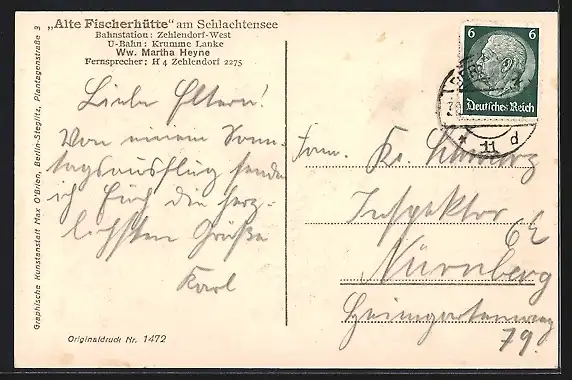 „Alte Fischerhütte" am Schlachtensee
Bahnstation: Zehlendorf-West
U-Bahn: Krumme Lanke
Ww. Martha Heyne
Fernsprecher: H 4 Zehlendorf 2275
Liebe Eltern!
Von einem Sonn-
tagsausflug sende
ich Euch die herz-
lichsten Grüße
Karl
Originaldruck Nr. 1472
Graphische Kunstanstalt Max O'Brien, Berlin-Steglitz, Plantagenstraße 3
6 6
Deutsches Reich
* 11 d
Fam. Kr.
Inspektor
Nürnberg
79.